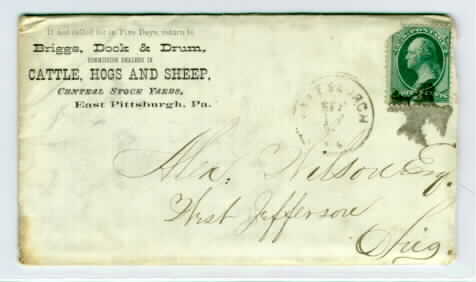 If not called for in Five Days, return to
Briggs, Dock & Drum,
COMMISSION DEALERS IN
CATTLE, HOGS AND SHEEP,
CENTRAL STOCK YARDS,
East Pittsburgh, Pa.
Alex. Wilson Esq.
West Jefferson
Ohio